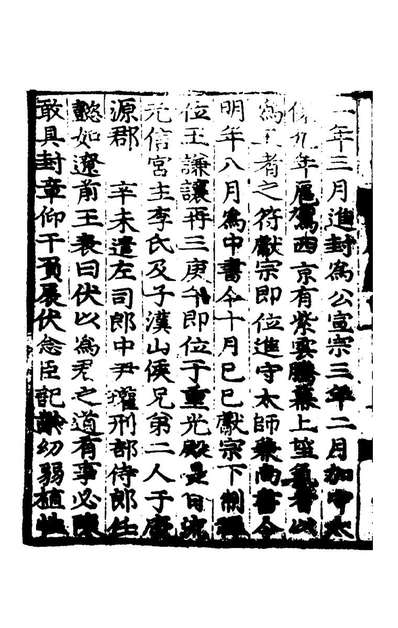 年三月進封為公宣宗三年二月加守太
保九年扈駕西京有紫雲騰幕上望氣者以
為王者之符獻宗即位進守太師兼尚書令
明年八月為中書令十月己巳獻宗下制禪
位王謙讓再三庚午即位于重光殿是日流
元信宮主李氏及子漢山侯兄弟二人于慶
源郡 辛未遣左司郎中尹瓘刑部侍郎任
懿如遼前王表曰伏以為君之道有事必陳
敢具封章仰干旒扆伏念臣齡幼弱植性